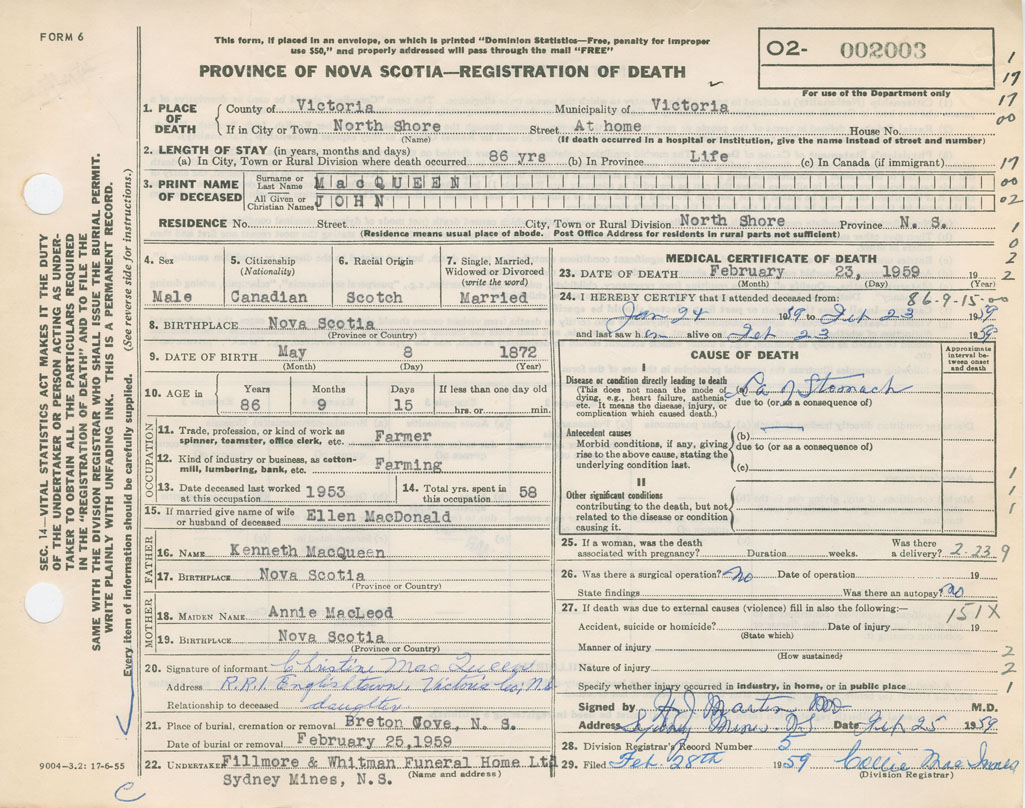 FORM 6
This form, if placed in an envelope, on which is printed "Dominion Statistics—Free, penalty for improper
use $50," and properly addressed will pass through the mail "FREE"
PROVINCE OF NOVA SCOTIA—REGISTRATION OF DEATH
O2- 002003
For use of the Department only
1. PLACE OF DEATH
County of Victoria Municipality of Victoria
If in City or Town North Shore Street At home House No.
(Name) (If death occurred in a hospital or institution, give the name instead of street and number)
2. LENGTH OF STAY (in years, months and days)
(a) In City, Town or Rural Division where death occurred 86 yrs (b) In Province Life (c) In Canada (if immigrant)
3. PRINT NAME OF DECEASED
Surname or Last Name MacQUEEN
All Given or Christian Names JOHN
RESIDENCE No. Street City, Town or Rural Division North Shore Province N. S.
(Residence means usual place of abode. Post Office Address for residents in rural parts not sufficient)
4. Sex Male
5. Citizenship (Nationality) Canadian
6. Racial Origin Scotch
7. Single, Married, Widowed or Divorced (write the word) Married
8. BIRTHPLACE Nova Scotia
(Province or Country)
9. DATE OF BIRTH May 8 1872
(Month) (Day) (Year)
10. AGE in Years Months Days If less than one day old
86 9 15 hrs. or min.
OCCUPATION
11. Trade, profession, or kind of work as
spinner, teamster, office clerk, etc. Farmer
12. Kind of industry or business, as cotton-
mill, lumbering, bank, etc. Farming
13. Date deceased last worked at this occupation 1953
14. Total yrs. spent in this occupation 58
15. If married give name of wife
or husband of deceased Ellen MacDonald
FATHER
16. NAME Kenneth MacQueen
17. BIRTHPLACE Nova Scotia
(Province or Country)
MOTHER
18. MAIDEN NAME Annie MacLeod
19. BIRTHPLACE Nova Scotia
(Province or Country)
20. Signature of informant Christine MacQueen
Address R.R.1. Englishtown, Victoria Co; N.S.
Relationship to deceased daughter
21. Place of burial, cremation or removal Breton Cove, N. S.
Date of burial or removal February 25,1959
22. UNDERTAKER Fillmore & Whitman Funeral Home Ltd
(Name and address)
Sydney Mines, N.S.
MEDICAL CERTIFICATE OF DEATH
23. DATE OF DEATH February 23, 1959 19
(Month) (Day) (Year)
86-9-15-00
24. I HEREBY CERTIFY that I attended deceased from:
Jan 24 1959 to Feb 23 1959
and last saw him alive on Feb 23 1959
CAUSE OF DEATH
Approximate interval between onset and death
I
Disease or condition directly leading to death
(This does not mean the mode of
dying, e.g., heart failure, asthenia,
etc. It means the disease, injury, or
complication which caused death.)
(a) Ca of Stomach
due to (or as a consequence of)
Antecedent causes
Morbid conditions, if any, giving
rise to the above cause, stating the
underlying condition last.
(b)
due to (or as a consequence of)
(c)
II
Other significant conditions
contributing to the death, but not
related to the disease or condition
causing it.
25. If a woman, was the death Was there
associated with pregnancy? Duration weeks. a delivery? 2-23-9
26. Was there a surgical operation? No Date of operation 19
State findings Was there an autopsy? No
27. If death was due to external causes (violence) fill in also the following:—
151X
Accident, suicide or homicide? Date of injury 19
(State which)
Manner of injury
(How sustained)
Nature of injury
Specify whether injury occurred in industry, in home, or in public place
Signed by Martin M.D.
Address Sydney Mines N.S. Date Feb 25 1959
28. Division Registrar's Record Number 5
29. Filed Feb. 28th 1959 Collie MacInnes
(Division Registrar)
SEC. 14—VITAL STATISTICS ACT MAKES IT THE DUTY
OF THE UNDERTAKER OR PERSON ACTING AS UNDER-
TAKER TO OBTAIN ALL THE PARTICULARS REQUIRED
IN THE "REGISTRATION OF DEATH" AND TO FILE THE
SAME WITH THE DIVISION REGISTRAR WHO SHALL ISSUE THE BURIAL PERMIT.
WRITE PLAINLY WITH UNFADING INK. THIS IS A PERMANENT RECORD.
Every item of information should be carefully supplied. (See reverse side for instructions.)
9004-3.2: 17-6-55
C
1
17
17
00
17
00
02
1
0
2
2
1
1
1
2
2
1